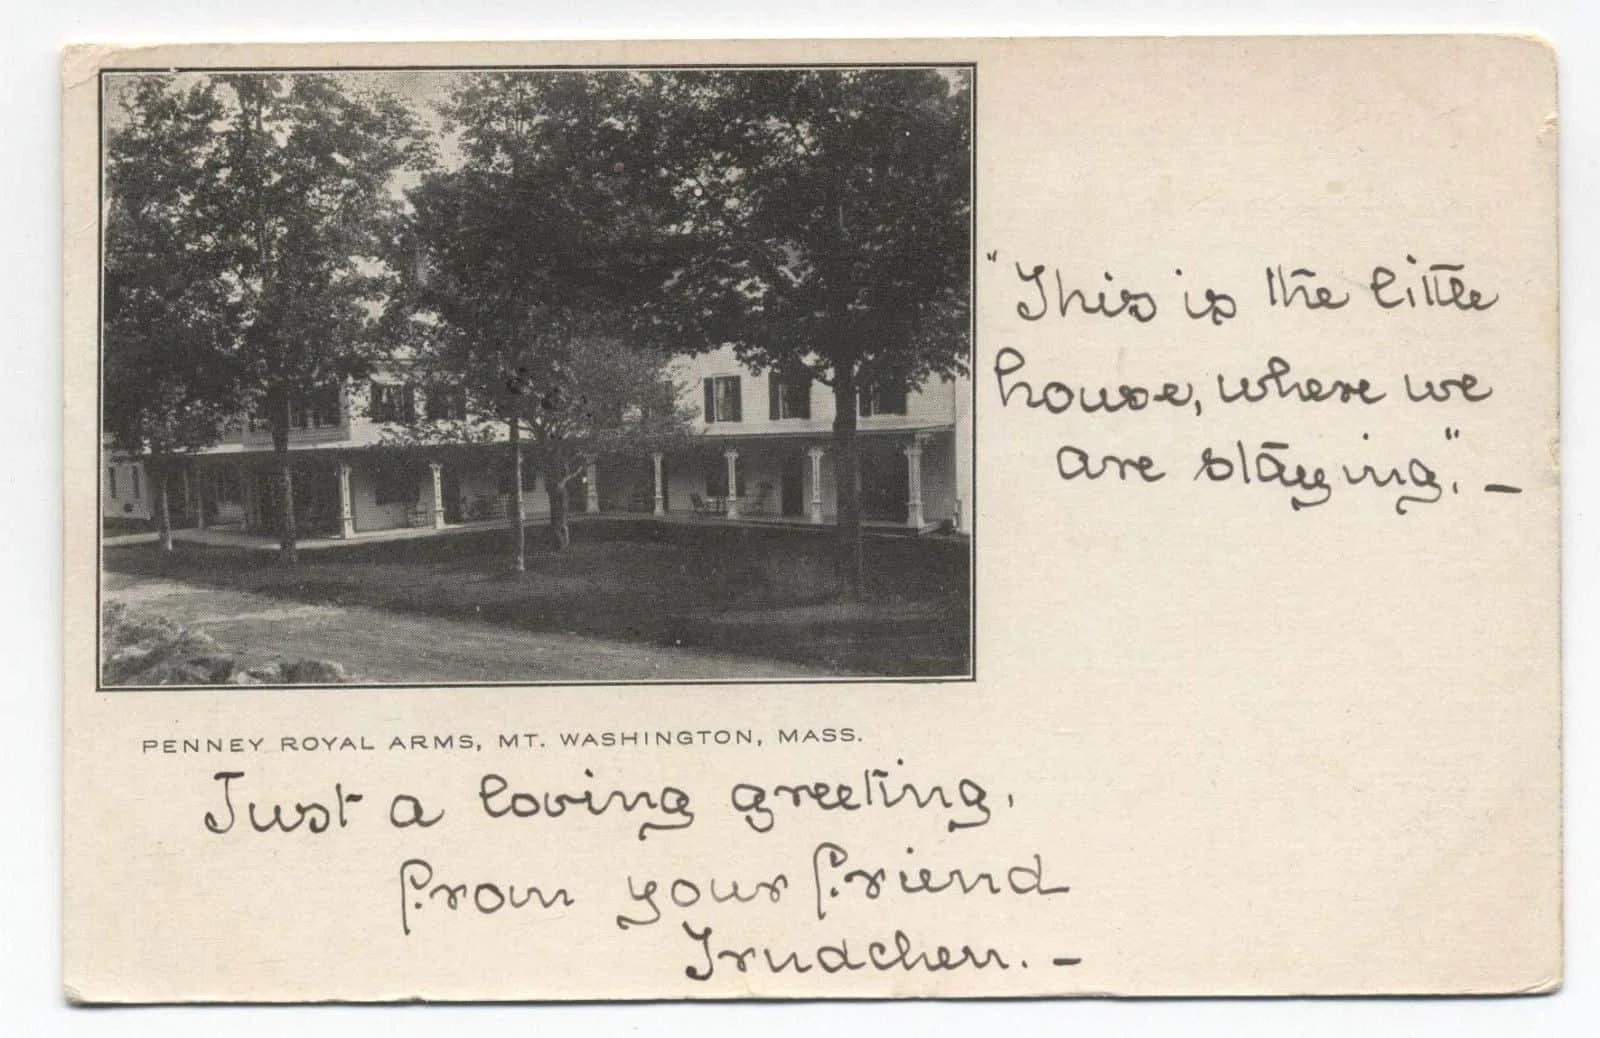 "This is the little
house, where we
are staying". –
PENNEY ROYAL ARMS, MT. WASHINGTON, MASS.
Just a loving greeting,
from your friend
Trudchen. –